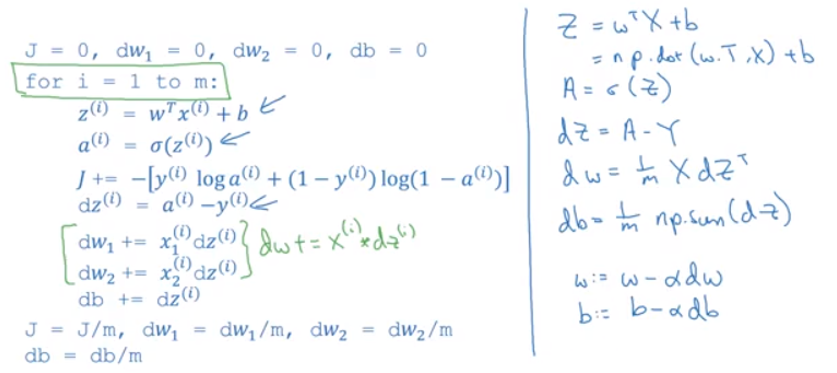 J = 0, dw₁ = 0, dw₂ = 0, db = 0
for i = 1 to m:
z⁽ⁱ⁾ = wᵀx⁽ⁱ⁾ + b
a⁽ⁱ⁾ = σ(z⁽ⁱ⁾)
J += −[y⁽ⁱ⁾ log a⁽ⁱ⁾ + (1 − y⁽ⁱ⁾) log(1 − a⁽ⁱ⁾)]
dz⁽ⁱ⁾ = a⁽ⁱ⁾ − y⁽ⁱ⁾
dw₁ += x₁⁽ⁱ⁾dz⁽ⁱ⁾
dw₂ += x₂⁽ⁱ⁾dz⁽ⁱ⁾
dw += x⁽ⁱ⁾ * dz⁽ⁱ⁾
db += dz⁽ⁱ⁾
J = J/m, dw₁ = dw₁/m, dw₂ = dw₂/m
db = db/m
Z = wᵀX + b
= np.dot(w.T, X) + b
A = σ(Z)
dZ = A - Y
dw = 1/m X dZᵀ
db = 1/m np.sum(dZ)
w := w - αdw
b := b - αdb